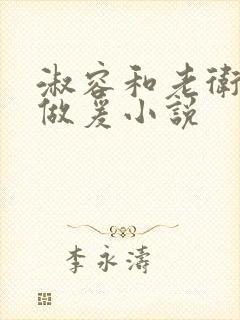 淑容和老衛
做爰小説
李永濤